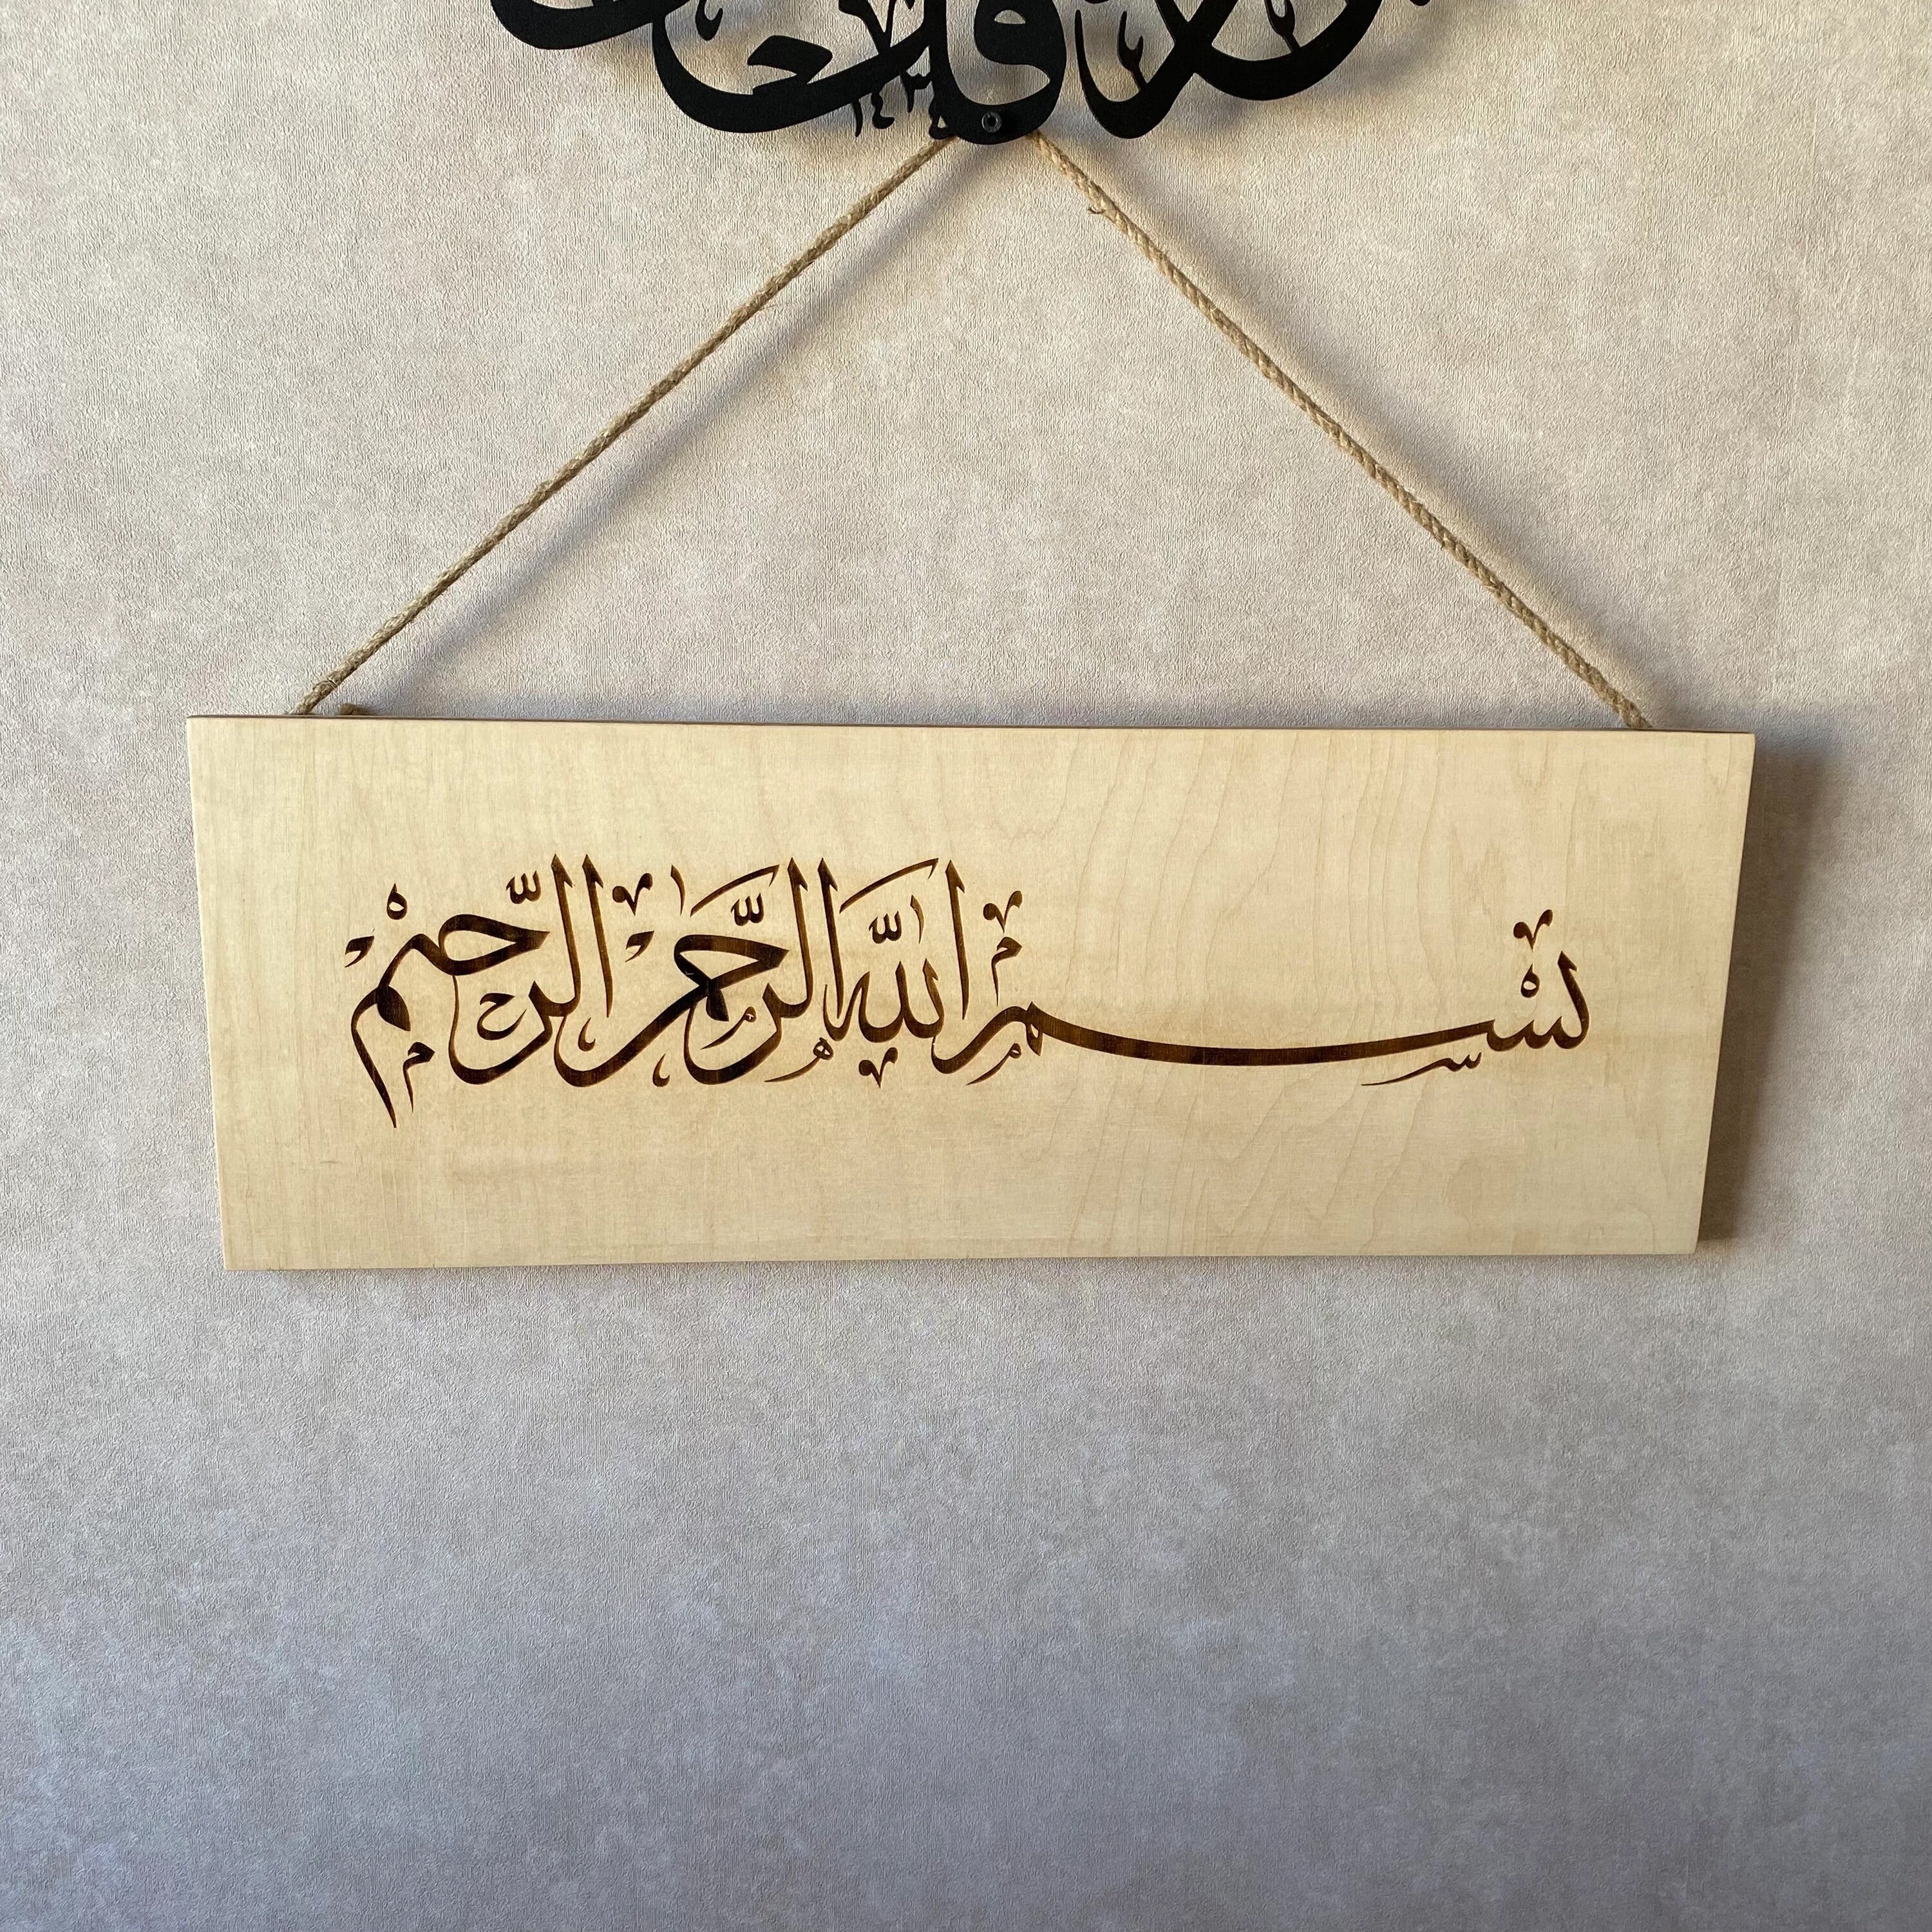 ١٤٣٤
بسم الله الرحمن الرحيم